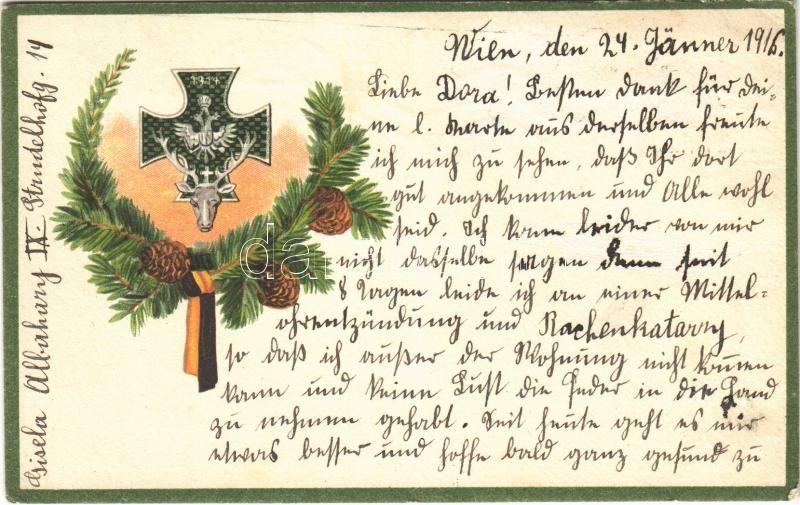 Wien, den 24. Jänner 1916.
Liebe Dora! Besten dank für dei-
ne l. Karte aus derselben freute
ich mich zu sehen, daß Ihr dort
gut angekommen und Alle wohl
seid. Ich kann leider von mir
nicht dasselbe sagen denn seit
8 Tagen leide ich an einer Mittel-
ohrentzündung und Rachenkatarrh,
so daß ich außer der Wohnung nicht kommen
kann und keine Lust die Feder in die Hand
zu nehmen gehabt. Seit heute geht es mir
etwas besser und hoffe bald ganz gesund zu
Gisela Albahary IX. Strudelhofg. 14
1914